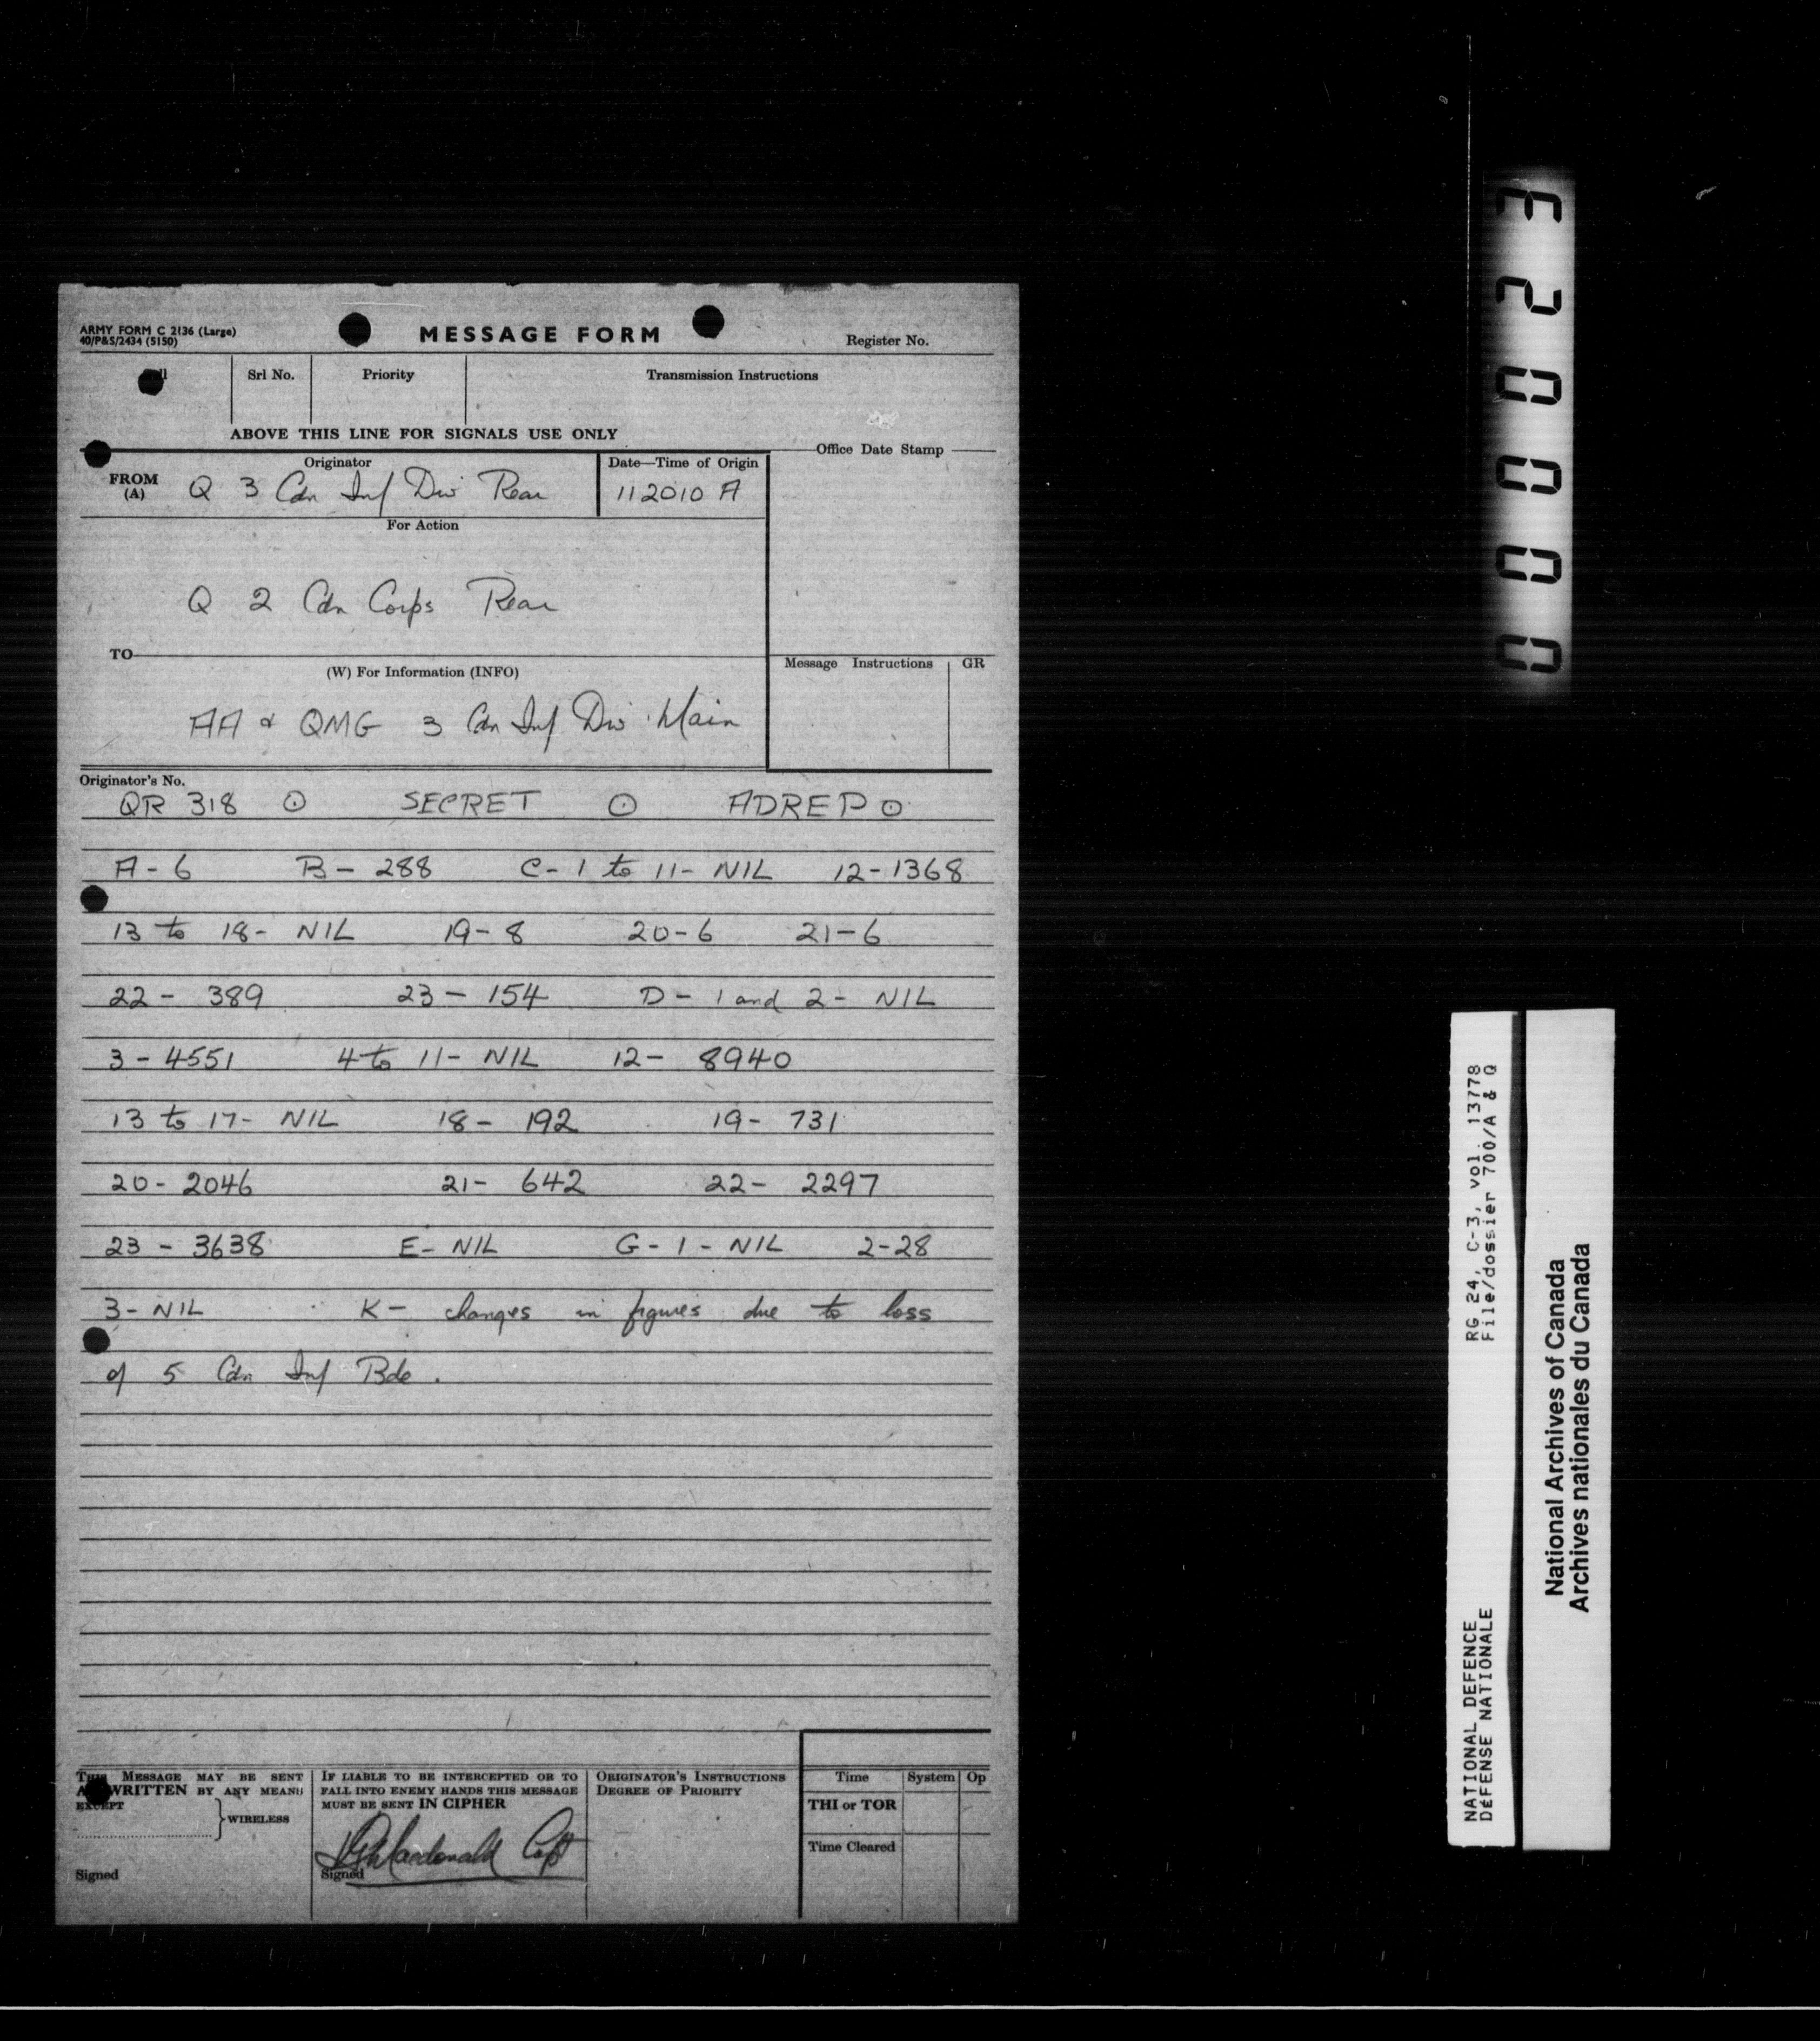 ARMY FORM C 2136 (Large)
40/P&S/2434 (5150)
MESSAGE FORM
Register No.
Srl No. Priority Transmission Instructions
ABOVE THIS LINE FOR SIGNALS USE ONLY
Office Date Stamp
Originator Date—Time of Origin
FROM (A) Q 3 Cdn Inf Div Rear 112010 A
For Action
Q 2 Cdn Corps Rear
TO
(W) For Information (INFO)
Message Instructions GR
AA & QMG 3 Cdn Inf Div Main
Originator's No.
QR 318 ⊙ SECRET ⊙ ADREP ⊙
A - 6 B - 288 C - 1 to 11 - NIL 12 - 1368
13 to 18 - NIL 19 - 8 20 - 6 21 - 6
22 - 389 23 - 154 D - 1 and 2 - NIL
3 - 4551 4 to 11 - NIL 12 - 8940
13 to 17 - NIL 18 - 192 19 - 731
20 - 2046 21 - 642 22 - 2297
23 - 3638 E - NIL G - 1 - NIL 2 - 28
3 - NIL K - changes in figures due to loss
of 5 Cdn Inf Bde.
THIS MESSAGE MAY BE SENT
AS WRITTEN BY ANY MEANS
EXCEPT
WIRELESS
Signed
IF LIABLE TO BE INTERCEPTED OR TO
FALL INTO ENEMY HANDS THIS MESSAGE
MUST BE SENT IN CIPHER
Macdonald Capt
Signed
ORIGINATOR'S INSTRUCTIONS
DEGREE OF PRIORITY
Time System Op
THI or TOR
Time Cleared
000023
RG 24, C-3, vol. 13778
File/dossier 700/A & Q
NATIONAL DEFENCE
DÉFENSE NATIONALE
National Archives of Canada
Archives nationales du Canada